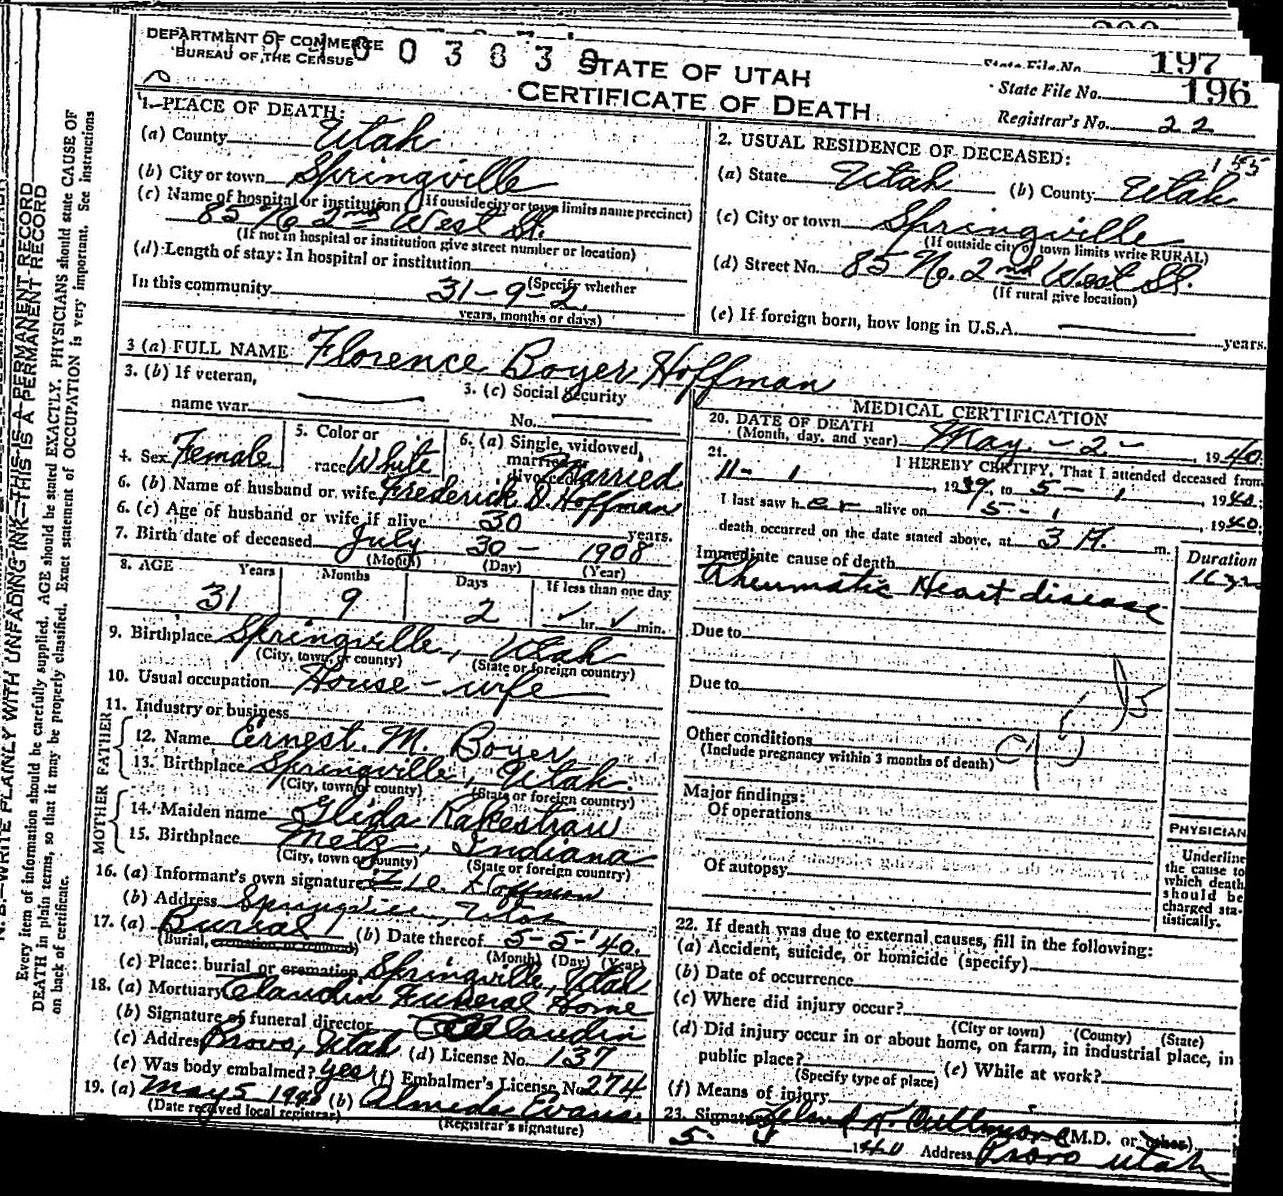 DEPARTMENT OF COMMERCE
BUREAU OF THE CENSUS
003839
STATE OF UTAH
CERTIFICATE OF DEATH
State File No. 197
State File No. 196
Registrar's No. 22
1. PLACE OF DEATH:
(a) County Utah
(b) City or town Springville
(If outside city or town limits name precinct)
(c) Name of hospital or institution
85 No 2nd West St.
(If not in hospital or institution give street number or location)
(d) Length of stay: In hospital or institution
(Specify whether
In this community 31-9-2
years, months or days)
2. USUAL RESIDENCE OF DECEASED: 155
(a) State Utah (b) County Utah
(c) City or town Springville
(If outside city or town limits write RURAL)
(d) Street No. 85 No. 2nd West St.
(If rural give location)
(e) If foreign born, how long in U.S.A. years.
3 (a) FULL NAME Florence Boyer Hoffman
3. (b) If veteran,
name war
3. (c) Social Security
No.
4. Sex Female
5. Color or
race White
6. (a) Single, widowed,
married,
divorced Married
6. (b) Name of husband or wife Frederick D. Hoffman
6. (c) Age of husband or wife if alive 30 years.
7. Birth date of deceased July 30 - 1908
(Month) (Day) (Year)
8. AGE Years Months Days If less than one day
31 9 2 hr. min.
9. Birthplace Springville, Utah
(City, town, or county) (State or foreign country)
10. Usual occupation House-wife
11. Industry or business
FATHER
12. Name Ernest M. Boyer
13. Birthplace Springville, Utah.
(City, town or county) (State or foreign country)
MOTHER
14. Maiden name Glida Rakestraw
15. Birthplace Metz, Indiana
(City, town or county) (State or foreign country)
16. (a) Informant's own signature Hoffman
(b) Address Springville, Utah
17. (a) Burial (b) Date thereof 5-5-'40.
(Burial, cremation, or removal) (Month) (Day) (Year)
(c) Place: burial or cremation Springville, Utah
18. (a) Mortuary Claudin Funeral Home
(b) Signature of funeral director Claudin
(c) Address Provo, Utah (d) License No. 137
(e) Was body embalmed? yes (f) Embalmer's License No. 274
19. (a) May 5 1940 (b) Almeda Evans
(Date received local registrar) (Registrar's signature)
MEDICAL CERTIFICATION
20. DATE OF DEATH
(Month, day, and year) May - 2 - , 1940.
21. I HEREBY CERTIFY, That I attended deceased from
11 - 1 , 1939, to 5 - 1 , 1940.
I last saw h er alive on 5 - 1 , 1940.
death occurred on the date stated above, at 3 A. m.
Duration
Immediate cause of death
Rheumatic Heart disease 16 yrs
Due to
Due to
Other conditions
(Include pregnancy within 3 months of death)
Major findings:
Of operations
Of autopsy
PHYSICIAN
Underline
the cause to
which death
should be
charged sta-
tistically.
22. If death was due to external causes, fill in the following:
(a) Accident, suicide, or homicide (specify)
(b) Date of occurrence
(c) Where did injury occur?
(City or town) (County) (State)
(d) Did injury occur in or about home, on farm, in industrial place, in
public place? (e) While at work?
(Specify type of place)
(f) Means of injury
23. Signature Leland K. Cullimore (M.D. or other)
5- 1940 Address Provo Utah
N. B.—WRITE PLAINLY WITH UNFADING INK—THIS IS A PERMANENT RECORD
Every item of information should be carefully supplied. AGE should be stated EXACTLY. PHYSICIANS should state CAUSE OF
DEATH in plain terms, so that it may be properly classified. Exact statement of OCCUPATION is very important. See instructions
on back of certificate.